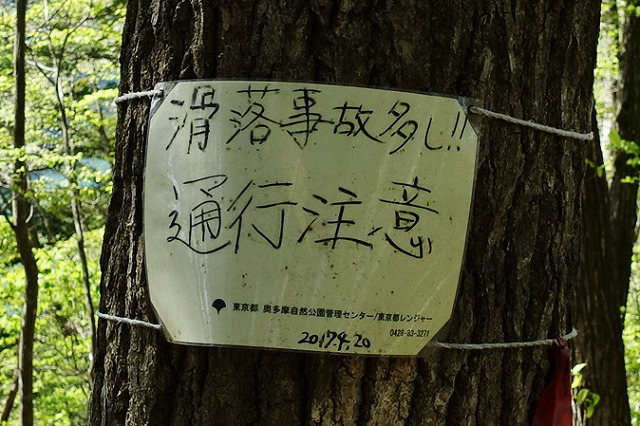 滑落事故多し!!
通行注意
東京都 奥多摩自然公園管理センター/東京都レンジャー
0428-83-3271
2017.4.20